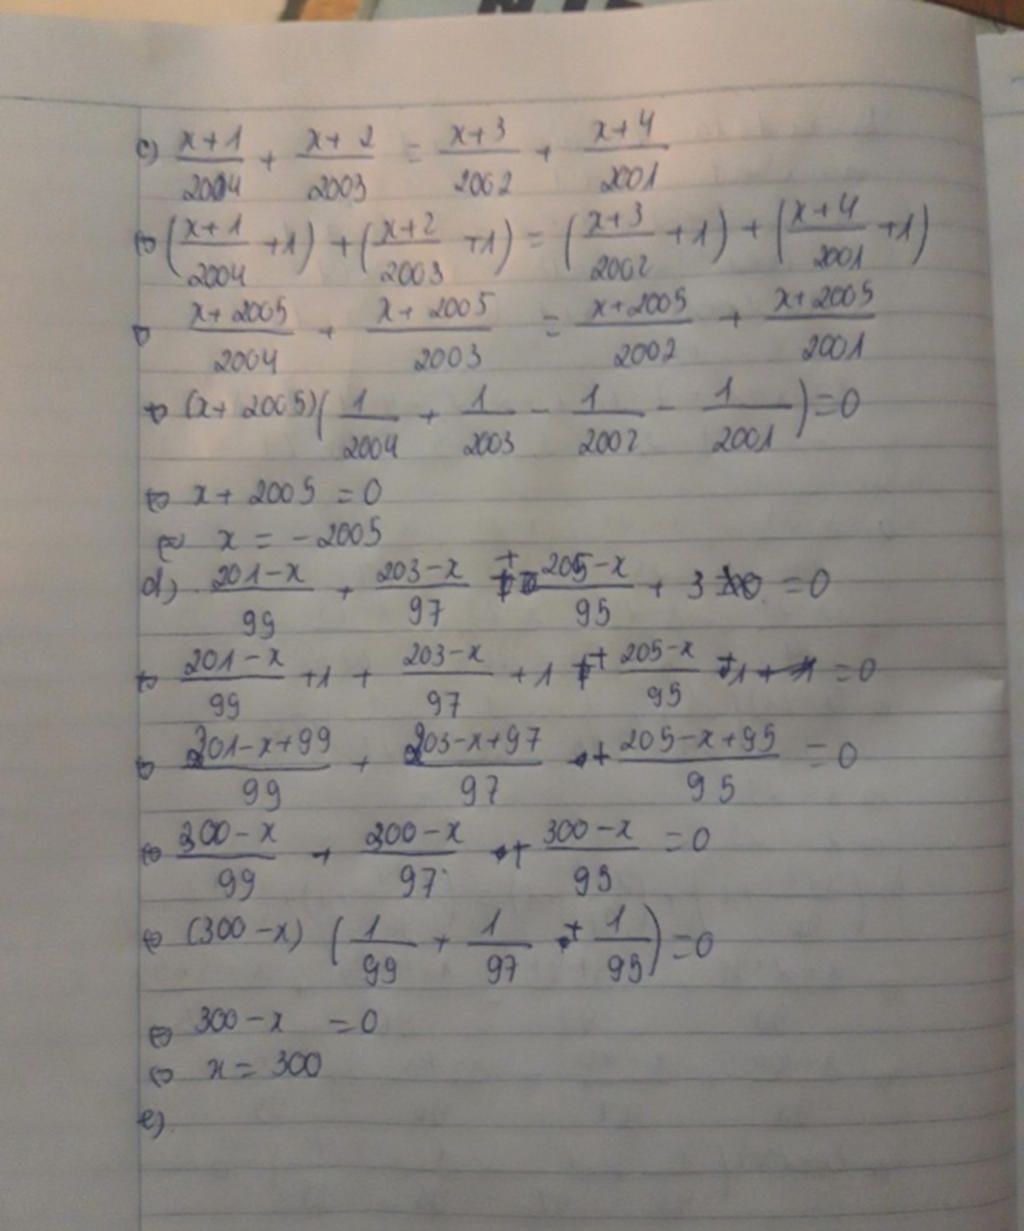 c) (x+1)/2004 + (x+2)/2003 = (x+3)/2002 + (x+4)/2001
⇔ ((x+1)/2004 +1) + ((x+2)/2003 +1) = ((x+3)/2002 +1) + ((x+4)/2001 +1)
⇔ (x+2005)/2004 + (x+2005)/2003 = (x+2005)/2002 + (x+2005)/2001
⇔ (x+2005)(1/2004 + 1/2003 - 1/2002 - 1/2001) = 0
⇔ x+2005 = 0
⇔ x = -2005
d) (201-x)/99 + (203-x)/97 + (205-x)/95 + 3 = 0
⇔ (201-x)/99 +1 + (203-x)/97 +1 + (205-x)/95 +1 = 0
⇔ (201-x+99)/99 + (203-x+97)/97 + (205-x+95)/95 = 0
⇔ (300-x)/99 + (300-x)/97 + (300-x)/95 = 0
⇔ (300-x) (1/99 + 1/97 + 1/95) = 0
⇔ 300-x = 0
⇔ x = 300
e)